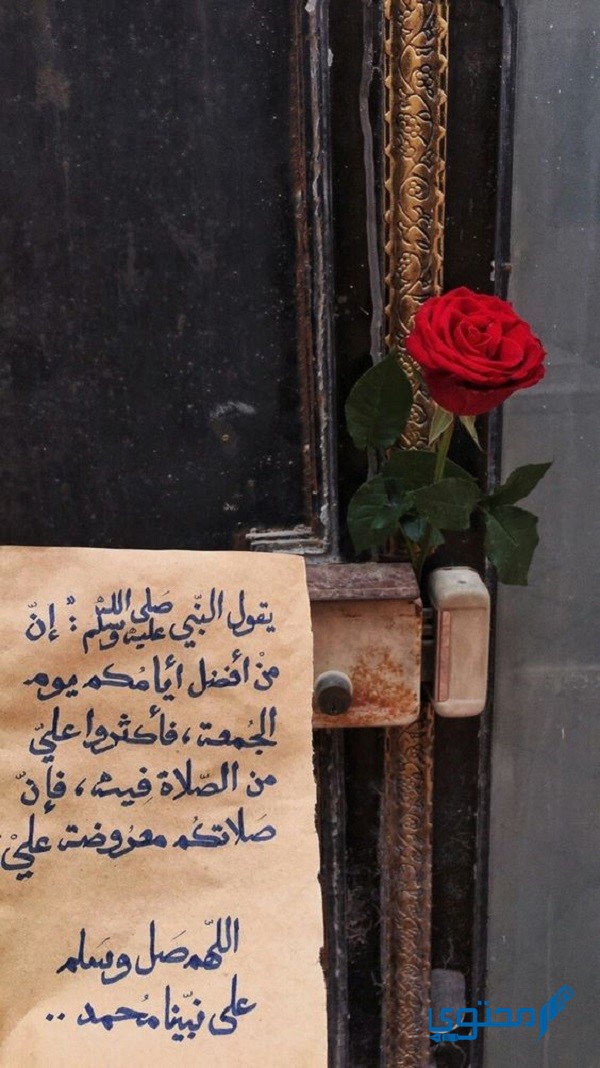 يقول النّبي صَلى اللّه عليه وسلم : إنّ
منْ أفضل أيامُكم يوم
الجُمعة ، فأكثروا عليّ
من الصّلاة فِيه ، فإنّ
صَلاتكُم معرُوضة عليّ
اللّهم صَل وسَلم
على نبيّنا مُحمد ..
محتوى